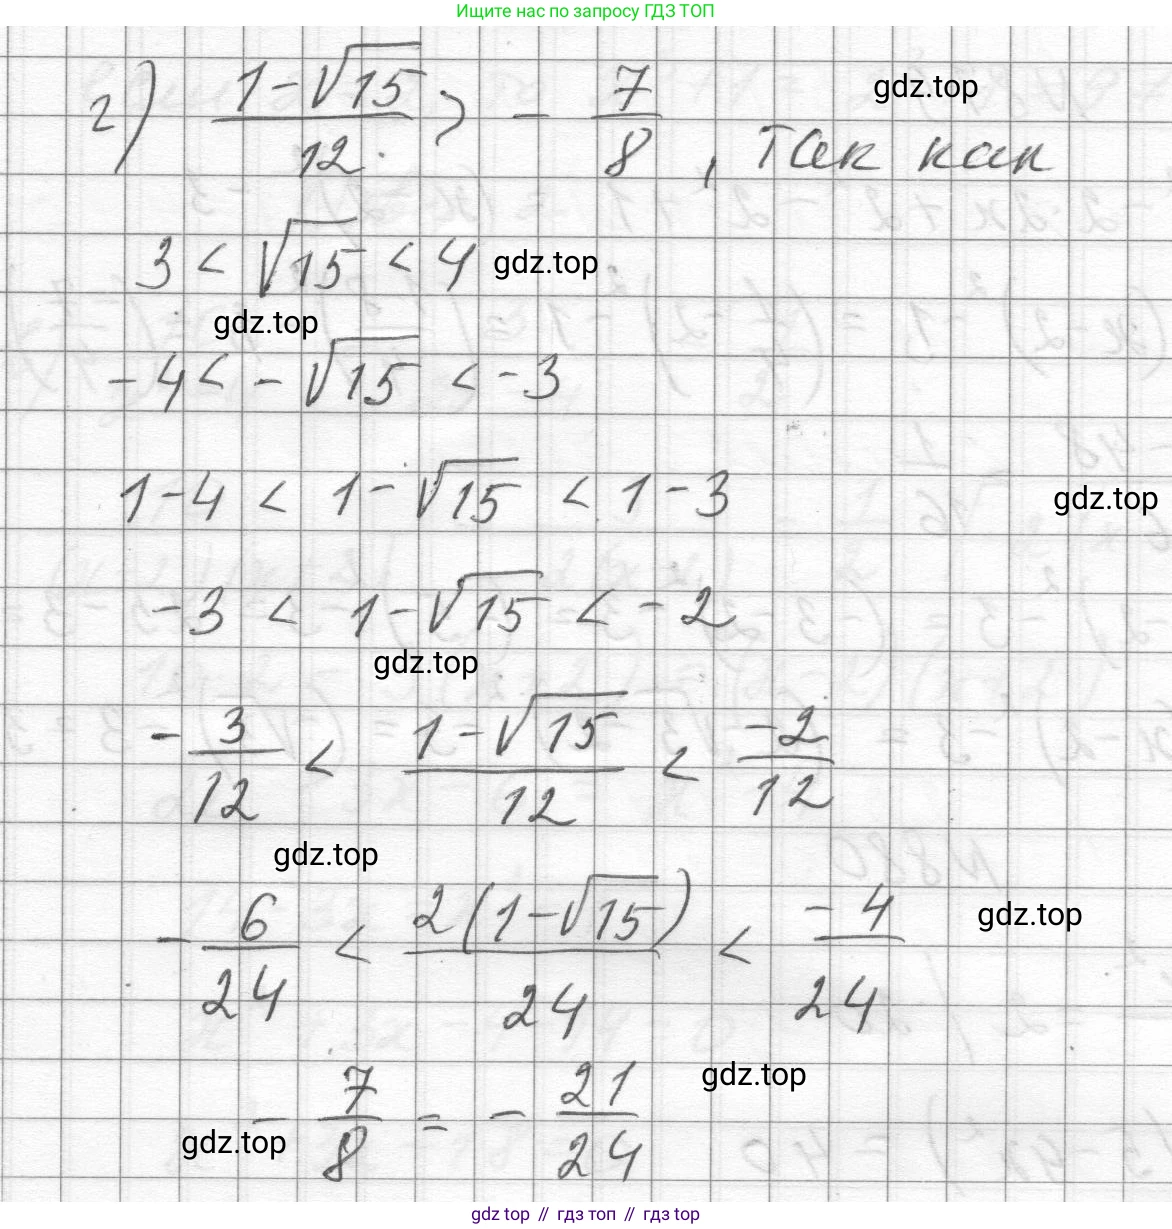 Ищите нас по запросу ГДЗ ТОП
г) (1-√15)/12 > - 7/8, так как
gdz.top
3 < √15 < 4
gdz.top
gdz.top
-4 < -√15 < -3
1-4 < 1-√15 < 1-3
gdz.top
-3 < 1-√15 < -2
gdz.top
- 3/12 < (1-√15)/12 < -2/12
gdz.top
- 6/24 < 2(1-√15)/24 < -4/24
gdz.top
gdz.top
- 7/8 = - 21/24
gdz.top
gdz top // гдз топ // гдз top